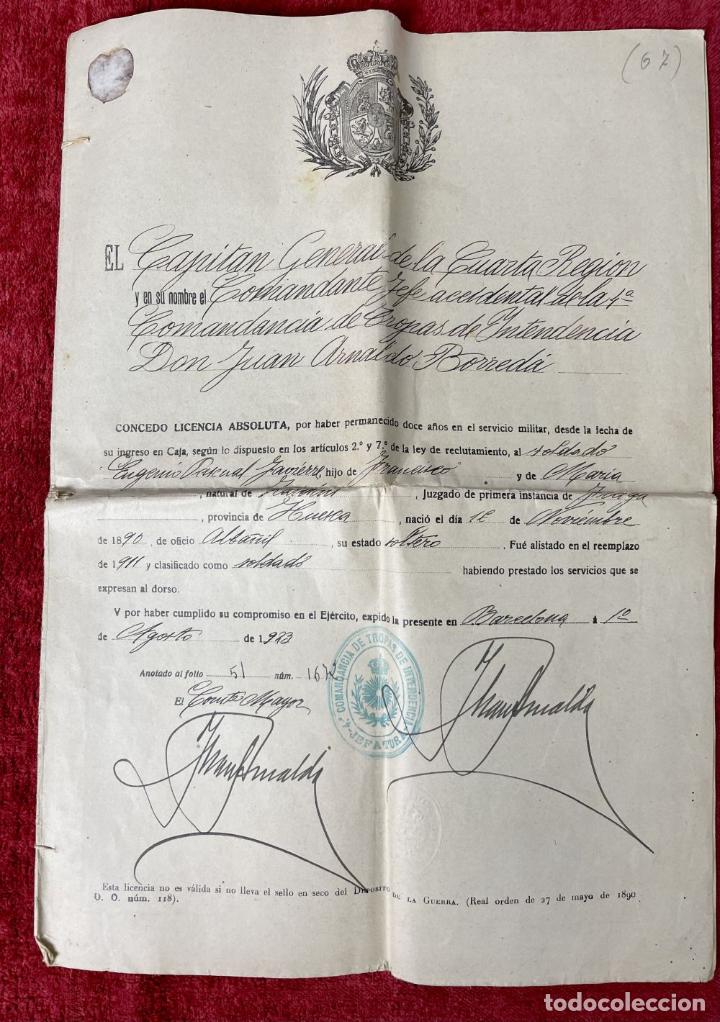 (67)
EL Capitan General de la Cuarta Region
y en su nombre el Comandante Jefe accidental de la 4ª
Comandancia de Tropas de Intendencia
Don Juan Arnaldo Borredá
CONCEDO LICENCIA ABSOLUTA, por haber permanecido doce años en el servicio militar, desde la fecha de
su ingreso en Caja, según lo dispuesto en los artículos 2.º y 7.º de la ley de reclutamiento, al soldado
Eugenio Pascual Javierre, hijo de Francisco y de Maria
, natural de , Juzgado de primera instancia de Fraga
, provincia de Huesca , nació el día 12 de Noviembre
de 1890, de oficio Albañil , su estado soltero . Fué alistado en el reemplazo
de 1911 y clasificado como soldado habiendo prestado los servicios que se
expresan al dorso.
Y por haber cumplido su compromiso en el Ejército, expido la presente en Barcelona á 1º
de Agosto de 1923
Anotado al folio 51 núm. 167
El Comte Mayor
4ª COMANDANCIA DE TROPAS DE INTENDENCIA
JEFATURA
Juan Arnaldo
Juan Arnaldo
Esta licencia no es válida si no lleva el sello en seco del DEPÓSITO DE LA GUERRA. (Real orden de 27 de mayo de 1890
D. O. núm. 118).
todocoleccion
todocoleccion.net